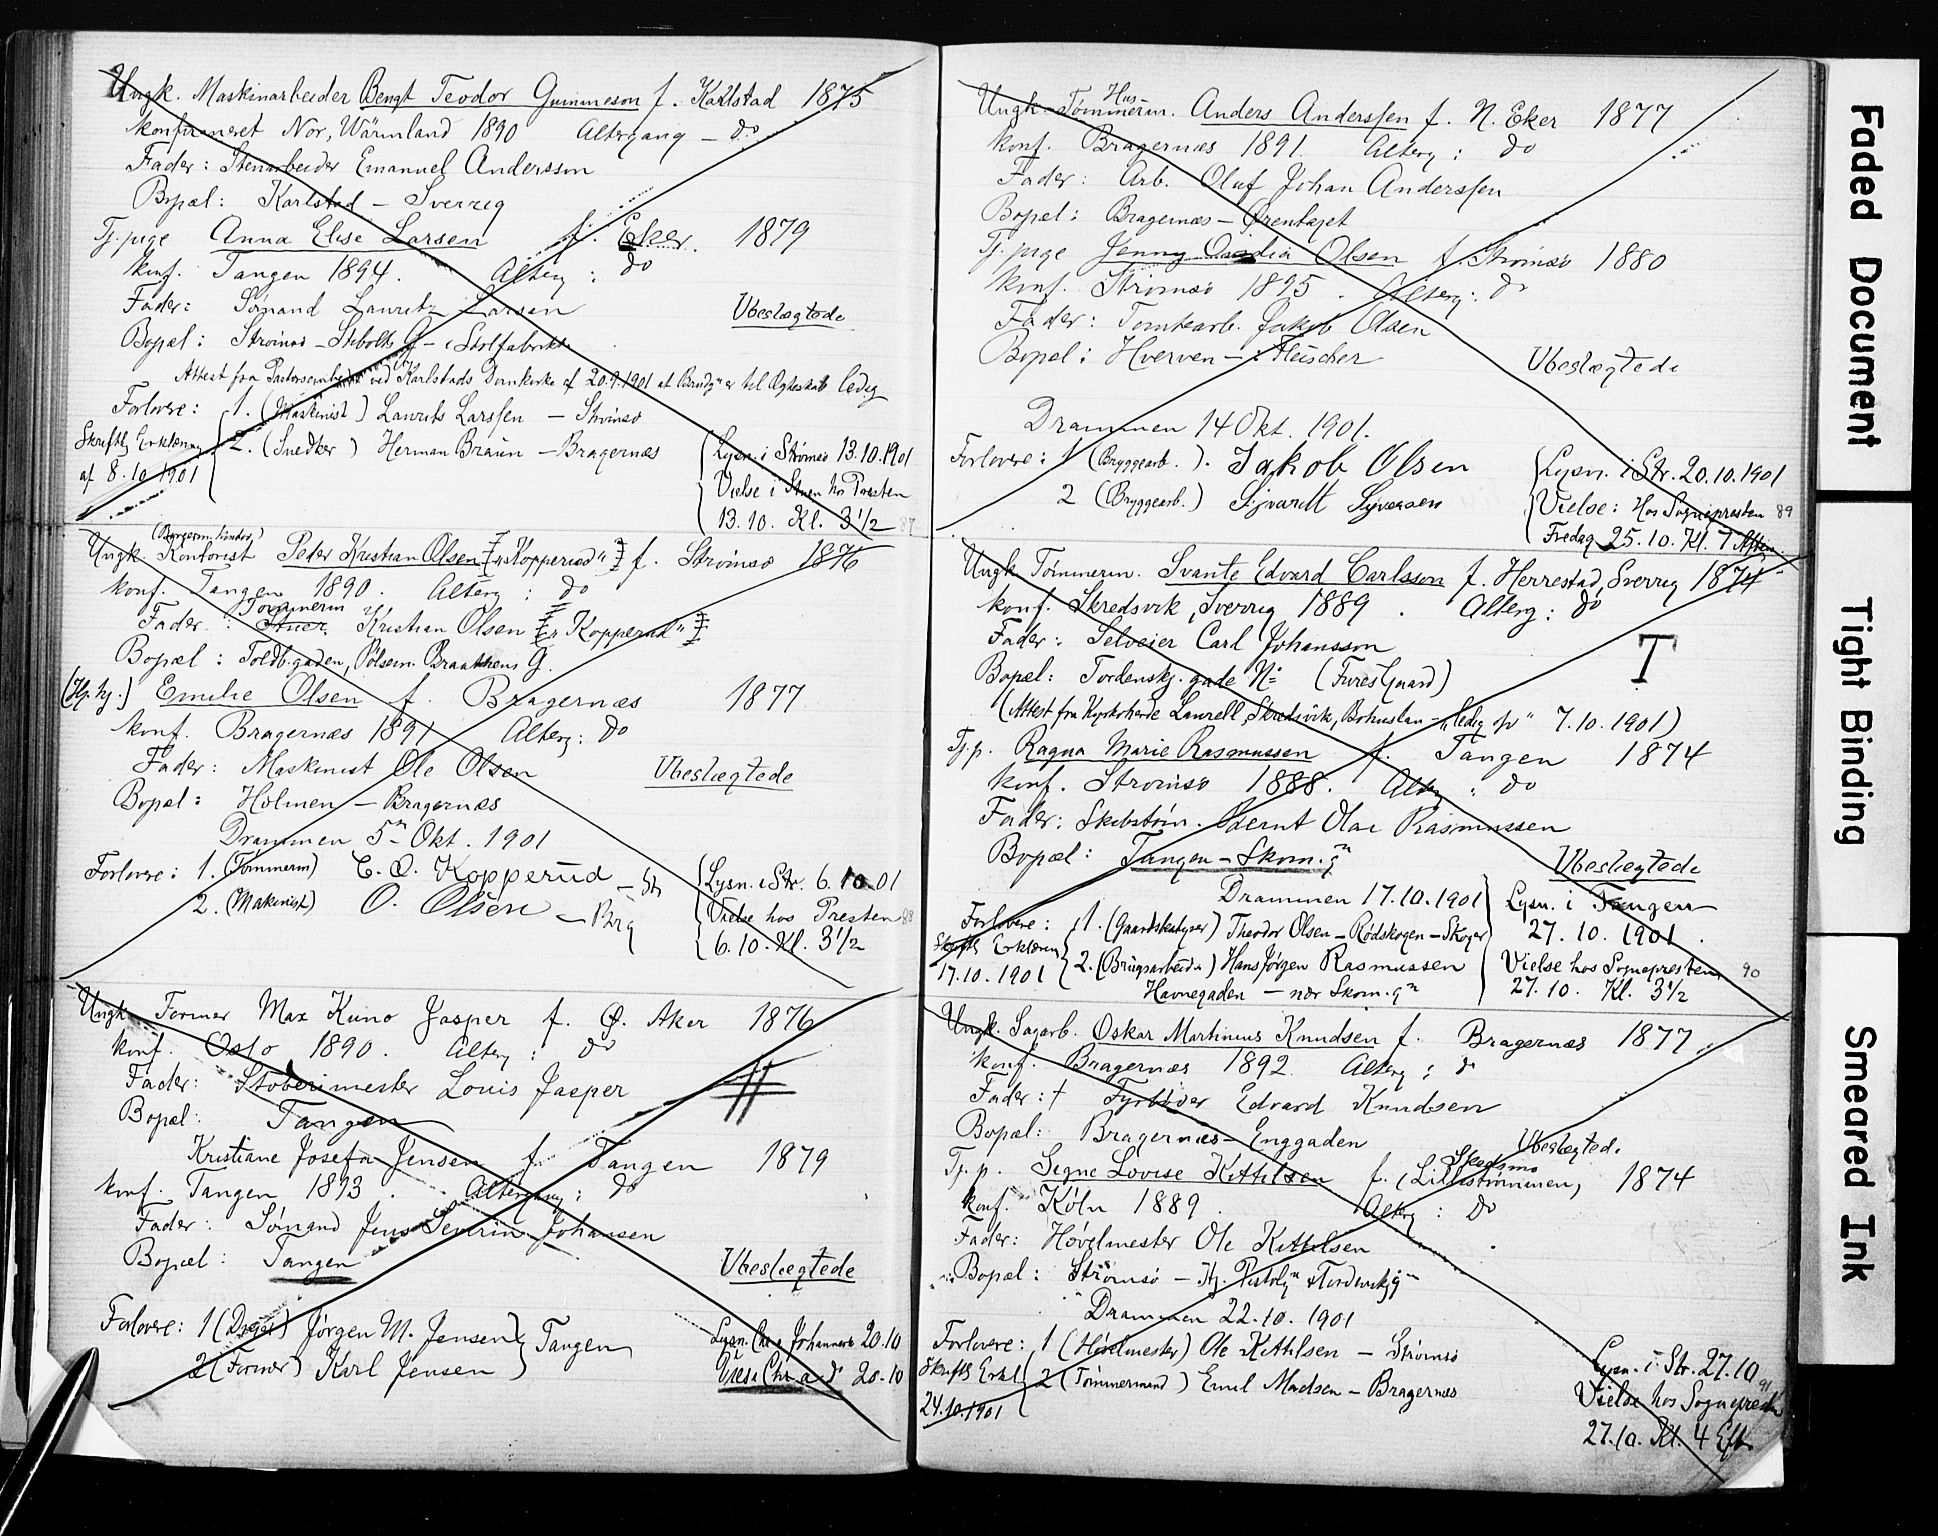 Ungk. Maskinarbeider Bengt Teodor Gummeson f. Karlstad 1875
konfirmeret Nor, Wärmland 1890 Altergang - do
Fader: Stenarbeider Emanuel Andersson
Bopæl: Karlstad - Sverrig
Tj. pige Anna Elise Larsen f. Eker 1879
konf. Tangen 1894. Alterg: do
Fader: Sømand Lauritz Larsen
Ubeslægtede
Bopæl: Strømsø - Stibolts G - i Stolfabrikk
Attest fra Pastorsembedet ved Karlstads Domkirke af 20.9.1901 at Brudg er til Ægteskab ledig
Forlovere: 1. (Maskinist) Laurits Larssen - Strømsø
Skriftlig Erklæring 2. (Snedker) Herman Braun - Bragernæs
af 8.10.1901
Lysn. i Strømsø 13.10.1901
Vielse i Stuen hos Presten
13.10. Kl. 3 1/2 87
Ungk. Kontorist Peder Kristian Olsen ("Kopperud") f. Strømsø 1876
konf. Tangen 1890. Alterg: do
Tømmerm
Fader: Stuer. Kristian Olsen ("Kopperud")
Bopæl: Toldb.gaden, Pølsem. Braathens G.
(Hj. hj.) Emilie Olsen f. Bragernæs 1877
konf. Bragernæs 1891 Alterg: do
Fader: Maskinist Ole Olsen
Ubeslægtede
Bopæl: Holmen - Bragernæs
Drammen 5 Okt. 1901
Forlovere: 1. (Tømmerm) C. O. Kopperud - Str
2. (Maskinist) O. Olsen - Brg
Lysn. i Str. 6.10.01
Vielse hos Presten 88
6.10. Kl. 3 1/2
Ungk. Former Max Kuno Jasper f. Ø. Aker 1876
konf. Oslo 1890. Alterg: do
Fader: Støberimester Louis Jasper
Bopæl: Tangen
Kristiane Josefa Jensen f. Tangen 1879
konf. Tangen 1893. Altergang: do
Fader: Sømand Jens Severin Johansen
Bopæl: Tangen
Ubeslægtede
Forlovere: 1 (Dreier) Jørgen M. Jensen
2 (Former) Karl Jensen
Tangen
Lysn. Chr.a Johannes 20.10
Viede Chr.a do 20.10
Hus
Ungk. Tømmerm. Anders Anderssen f. N. Eker 1877
konf. Bragernæs 1891. Alterg: do
Fader: Arb. Oluf Johan Anderssen
Bopæl: Bragernæs - Ørentaget
Tj. pige Jenny Olsen f. Strømsø 1880
konf. Strømsø 1895. Alterg: do
Fader: Tomtearb. Jakob Olsen
Bopæl: Hverven - Fleischer
Ubeslægtede
Drammen 14 Okt. 1901.
Forlovere: 1 (Bryggearb.). Jakob Olsen
2 (Bryggearb.) Sivardt Syversen
Lysn. i Str. 20.10.1901
Vielse: Hos Sognepresten 89
Fredag 25.10. Kl. 7 Aften
Ungk. Tømmerm. Svante Edvard Carlsson f. Herrestad, Sverrig 1874
konf. Skredsvik, Sverrig 1889. Alterg: do
Fader: Selveier Carl Johansson
T
Bopæl: Tordenskj. gade No (Fures Gaard)
(Attest fra Kyrkoherde Laurell, Skredsvik, Bohuslän - "ledig" 7.10.1901)
Tj. p. Ragna Marie Rasmussen f. Tangen 1874
konf. Strømsø 1888. Alterg: do
Fader: Skibstøm. Bernt Olai Rasmussen
Bopæl: Tangen - Skom.g
Ubeslægtede
Drammen 17.10.1901
Forlovere: 1. (Gaardsbestyrer) Theodor Olsen - Rødskogen - Skoger
Skriftl Erklæring
17.10.1901 2. (Brugsarbeider) Hans Jørgen Rasmussen
Havnegaden - nær Skom.g
Lysn. i Tangen
27.10.1901.
Vielse hos Sognepresten 90
27.10. Kl. 3 1/2
Ungk. Sagarb. Oskar Martinius Knudsen f. Bragernæs 1877
konf. Bragernæs 1892. Alterg: do
Fader: † Fyrbøder Edvard Knudsen
Bopæl: Bragernæs - Enggaden
Ubeslægtede
Skedsmo
Tj. p. Signe Lovise Kittilsen f. (Lillestrømmen) 1874
konf. Köln 1889. Alterg: do
Fader: Høvelmester Ole Kittilsen
Bopæl: Strømsø - Hj. &
Drammen 22.10.1901
Forlovere: 1 (Høvelmester) Ole Kittilsen - Strømsø
Skriftl Erkl 2 (Tømmermand) Emil Madsen - Bragernæs
24.10.1901
Lysn. i Str. 27.10
91
Vielse hos Sognepresten
27.10. Kl. 4 Eft
Faded Document
Tight Binding
Smeared Ink